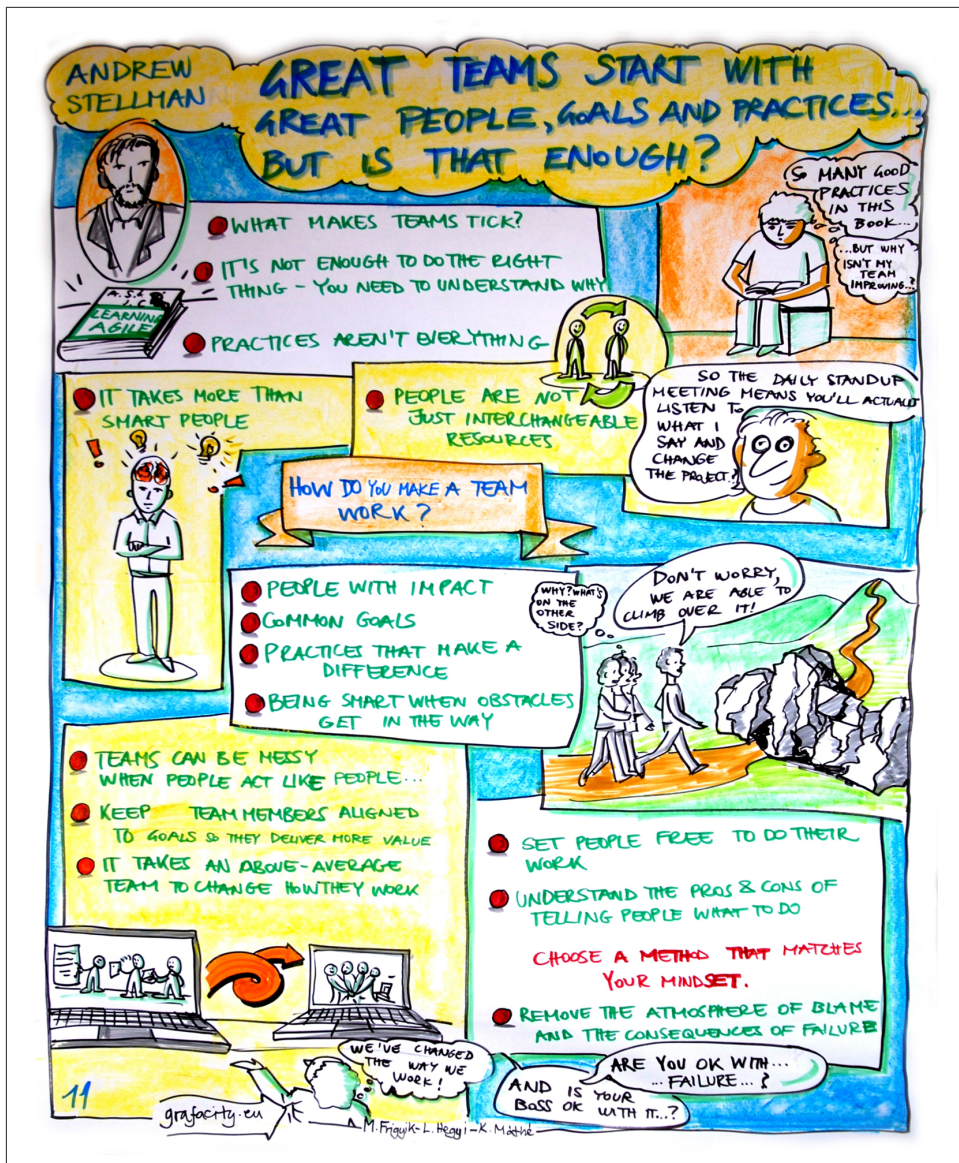 ANDREW
STELLMAN
GREAT TEAMS START WITH
GREAT PEOPLE, GOALS AND PRACTICES...
BUT IS THAT ENOUGH?
SO MANY GOOD
PRACTICES
IN THIS
BOOK...
...BUT WHY
ISN'T MY
TEAM
IMPROVING..?
WHAT MAKES TEAMS TICK?
IT'S NOT ENOUGH TO DO THE RIGHT
THING - YOU NEED TO UNDERSTAND WHY
PRACTICES AREN'T EVERYTHING
LEARNING
AGILE
IT TAKES MORE THAN
SMART PEOPLE
PEOPLE ARE NOT
JUST INTERCHANGEABLE
RESOURCES
SO THE DAILY STANDUP
MEETING MEANS YOU'LL ACTUALLY
LISTEN TO
WHAT I
SAY AND
CHANGE
THE PROJECT..?
HOW DO YOU MAKE A TEAM
WORK?
PEOPLE WITH IMPACT
COMMON GOALS
PRACTICES THAT MAKE A
DIFFERENCE
BEING SMART WHEN OBSTACLES
GET IN THE WAY
WHY? WHAT'S
ON THE
OTHER
SIDE?
DON'T WORRY,
WE ARE ABLE TO
CLIMB OVER IT!
TEAMS CAN BE MESSY
WHEN PEOPLE ACT LIKE PEOPLE...
KEEP TEAM MEMBERS ALIGNED
TO GOALS SO THEY DELIVER MORE VALUE
IT TAKES AN ABOVE-AVERAGE
TEAM TO CHANGE HOW THEY WORK
SET PEOPLE FREE TO DO THEIR
WORK
UNDERSTAND THE PROS & CONS OF
TELLING PEOPLE WHAT TO DO
CHOOSE A METHOD THAT MATCHES
YOUR MINDSET.
REMOVE THE ATMOSPHERE OF BLAME
AND THE CONSEQUENCES OF FAILURE
WE'VE CHANGED
THE WAY WE
WORK!
ARE YOU OK WITH...
... FAILURE...?
AND IS YOUR
BOSS OK WITH IT...?
11
grafacity.eu
M. Frigyik - L. Hegyi - K. Máthé